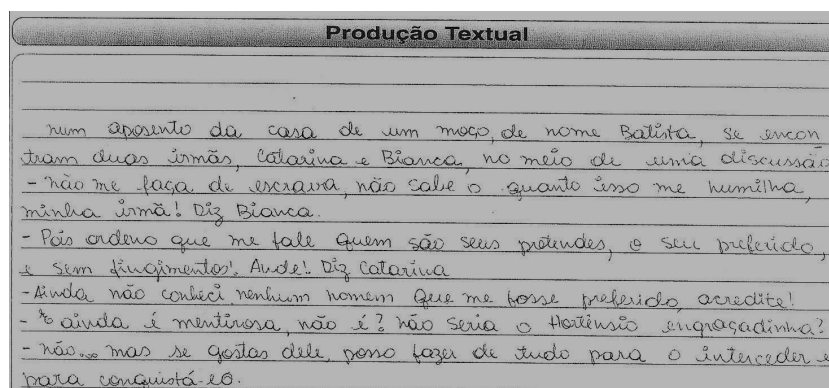 Produção Textual
num aposento da casa de um moço, de nome Batista, se encon
tram duas irmãs, Catarina e Bianca, no meio de uma discussão
- não me faça de escrava, não sabe o quanto isso me humilha,
minha irmã! Diz Bianca.
- Pois ordeno que me fale quem são seus pretendes, o seu preferido,
e sem fingimentos! Ande! Diz Catarina
- Ainda não conheci nenhum homem que me fosse preferido, acredite!
- E ainda é mentirosa, não é? não seria o Hortênsio engraçadinha?
- não... mas se gostas dele, posso fazer de tudo para o interceder e
para conquistá-lo.